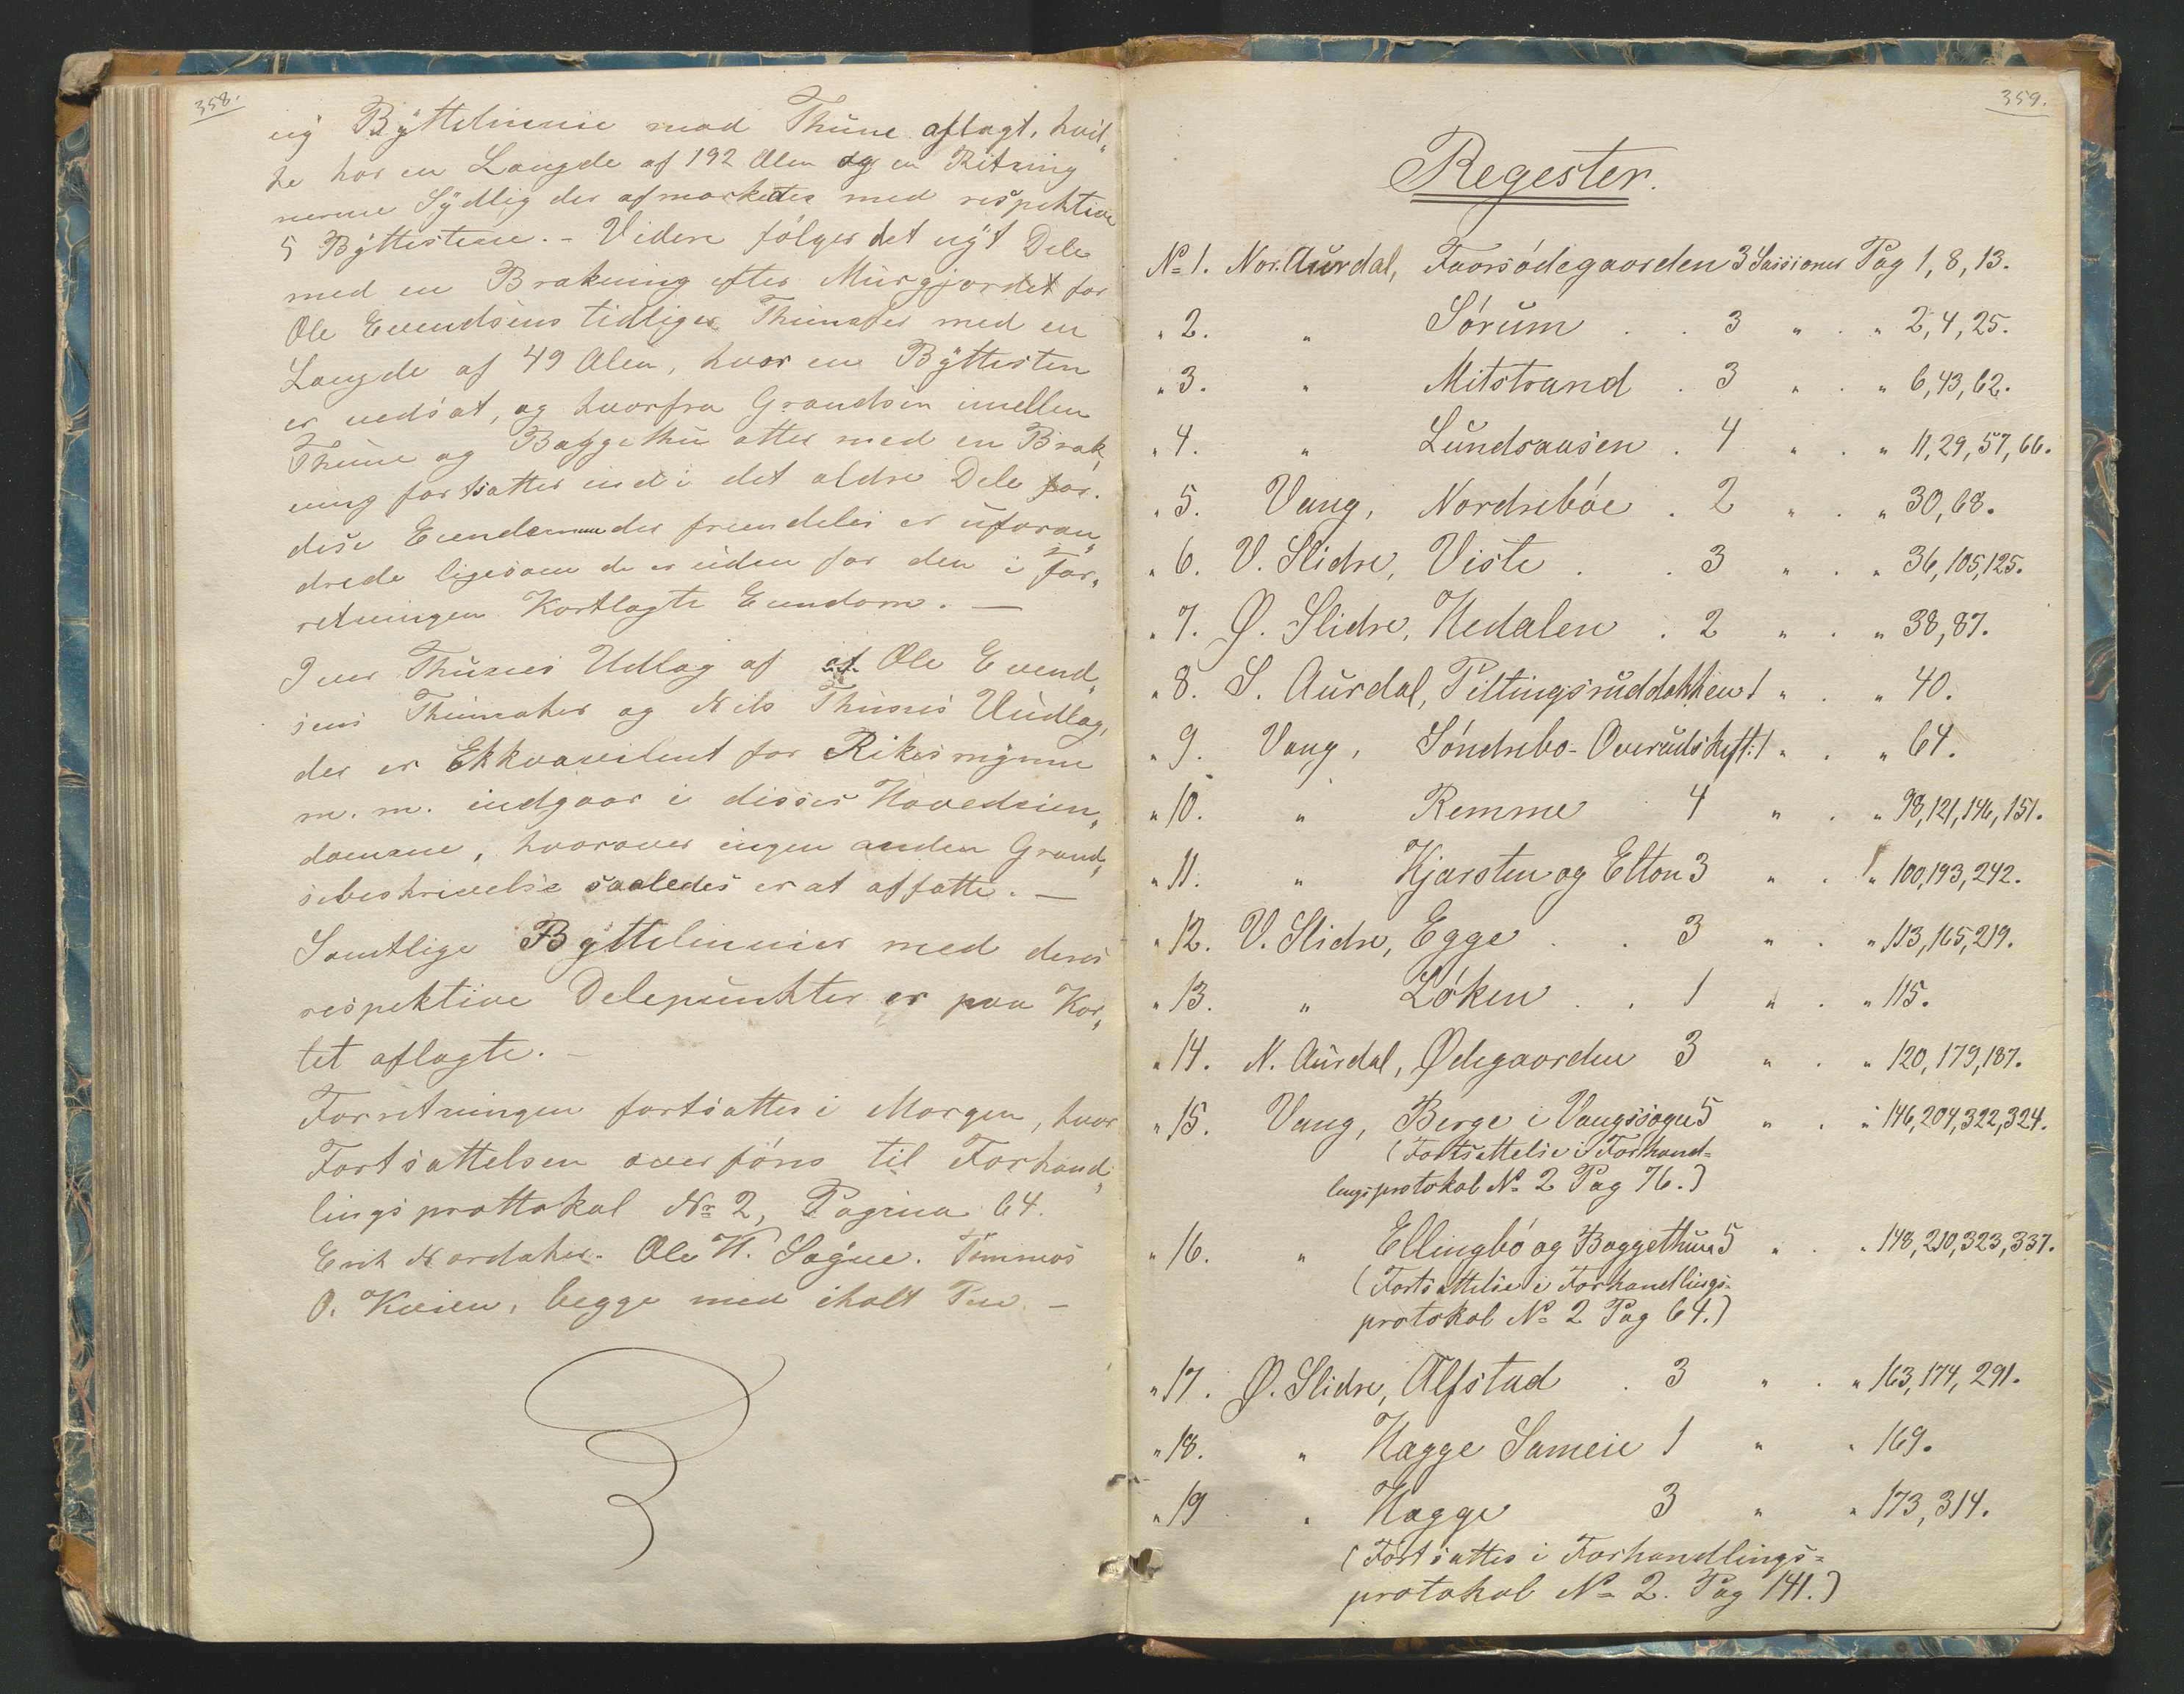 358.
ny Byttelinnie mod Thune aflagt, hvil„
ke har en Længde af 192 Alen og en Retning
nerme Sydlig der afmærkedes med respektive
5 Byttestene. - Videre følges det nyt Dele
med en Brækning efter Murgjærdet for
Ole Evendsens tidliger Thunaker med en
Længde af 49 Alen, hvor en Byttesten
er nedsat, og hvorfra Grændsen imellem
Thune og Baggethu atter med en Bræk„
ning fortsættes ind i det ældre Dele for.
disse Eiendommer der fremdeles er uforan„
drede ligesom de er uden for den i For„
retningen Kartlagte Eiendom. —
Iver Thunes Udlag af af Ole Evend„
sens Thunaker og Nils Thunes Uudlag,
der er Ekkvavilent for Rikesmyrene
m. m. indgaar i disses Hovedeien„
domme, hvorover ingen anden Grænd„
sebeskrivelse saaledes er at affatte. —
Samtlige Byttelinnier med deres
respektive Delepunkter er paa Kar„
tet aflagte. —
Forretningen fortsættes i Morgen, hvor
Fortsættelsen overføres til Forhand„
lingsprottokol № 2, Pagina 64.
Erik Nordaker. Ole H. Søgne. Tommos
O. Kvien, begge med iholt Pen. —
359.
Regester.
№ 1. Nor. Aurdal, Faorsødegaarden 3 Sæssioner Pag 1, 8, 13.
„ 2. „ Sørum . . 3 „ . „ 2, 4, 25.
„ 3. „ Mitstrand . 3 „ . „ 6, 43, 62.
„ 4. „ Lundsaasen . 4 „ . „ 11, 29, 57, 66.
„ 5. Vang, Nordrebøe . 2 „ . „ 30, 68.
„ 6. V. Slidre, Viste . . 3 „ . „ 36, 105, 125.
„ 7. Ø. Slidre, Hedalen . 2 „ . „ 38, 87.
„ 8. S. Aurdal, Piltingsruddokken 1 „ . „ 40.
„ 9. Vang, Søndrebo-Overudskift: 1 „ . „ 64.
„ 10. „ Remme 4 „ . „ 98, 121, 146, 151.
„ 11. „ Kjærsten og Elton 3 „ . „ 100, 193, 242.
„ 12. V. Slidre, Egge . . 3 „ . „ 113, 165, 219.
„ 13. „ Løken . . 1 „ . „ 115.
„ 14. N. Aurdal, Ødegaarden 3 „ . „ 120, 179, 187.
„ 15. Vang, Berge i Vangssogn 5 „ . „ 146, 204, 322, 324.
(Fortsættelse i Forhand=
lingsprotokol № 2 Pag 76.)
„ 16. „ Ellingbø og Baggethun 5 „ . „ 148, 210, 323, 337.
(Fortsættelse i Forhandlings-
protokol № 2 Pag 64.)
„ 17. Ø. Slidre, Alfstad . 3 „ . „ 163, 174, 291.
„ 18. „ Hægge Sameie 1 „ „ 169.
„ 19 „ Hægge 3 „ „ 173, 314.
(Fortsættes i Forhandlings=
protokol № 2. Pag 141.)